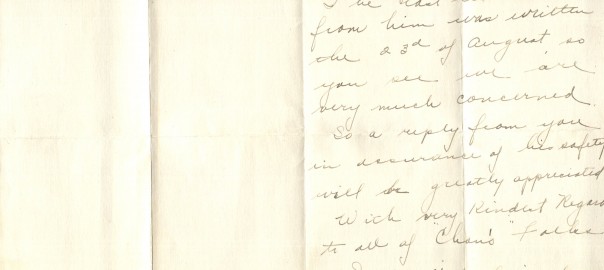 from him was written
the 23rd of August so
you see we are
very much concerned.
So a reply from you
in assurance of his safety
will be greatly appreciated
With very Kindest Regards
to all of "Chon's" folks